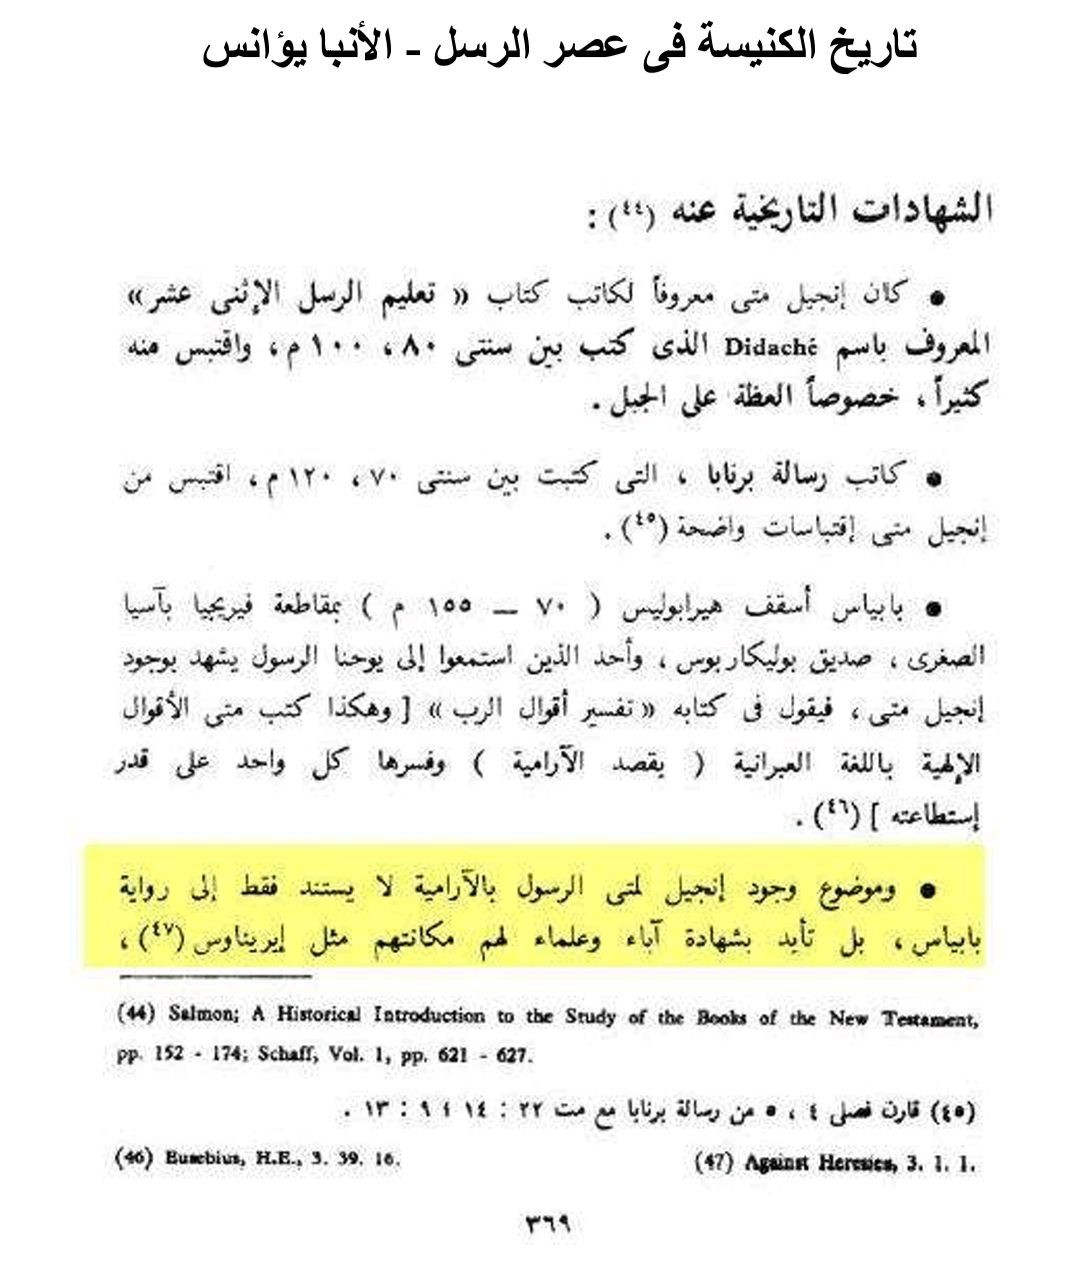 تاريخ الكنيسة فى عصر الرسل - الأنبا يؤانس
الشهادات التاريخية عنه (٤٤) :
● كان إنجيل متى معروفاً لكاتب كتاب « تعليم الرسل الإثنى عشر»
المعروف باسم Didaché الذى كتب بين سنتى ٨٠ ، ١٠٠ م ، واقتبس منه
كثيراً ، خصوصاً العظة على الجبل .
● كاتب رسالة برنابا ، التى كتبت بين سنتى ٧٠ ، ١٢٠ م ، اقتبس من
إنجيل متى إقتباسات واضحة (٤٥) .
● بابياس أسقف هيرابوليس ( ٧٠ — ١٥٥ م ) بمقاطعة فيريجيا بآسيا
الصغرى ، صديق بوليكاربوس ، وأحد الذين استمعوا إلى يوحنا الرسول يشهد بوجود
إنجيل متى ، فيقول فى كتابه « تفسير أقوال الرب » [ وهكذا كتب متى الأقوال
الإلهية باللغة العبرانية ( يقصد الآرامية ) وفسرها كل واحد على قدر
إستطاعته ] (٤٦) .
● وموضوع وجود إنجيل لمتى الرسول بالآرامية لا يستند فقط إلى رواية
بابياس ، بل تأيد بشهادة آباء وعلماء لهم مكانتهم مثل إيريناوس (٤٧) ،
(44) Salmon; A Historical Introduction to the Study of the Books of the New Testament,
pp. 152 - 174; Schaff, Vol. 1, pp. 621 - 627.
(٤٥) قارن فصلى ٤ ، ٥ من رسالة برنابا مع مت ٢٢ : ١٤ ؛ ٩ : ١٣ .
(46) Eusebius, H.E., 3. 39. 16.
(47) Against Heresies, 3. 1. 1.
٣٦٩